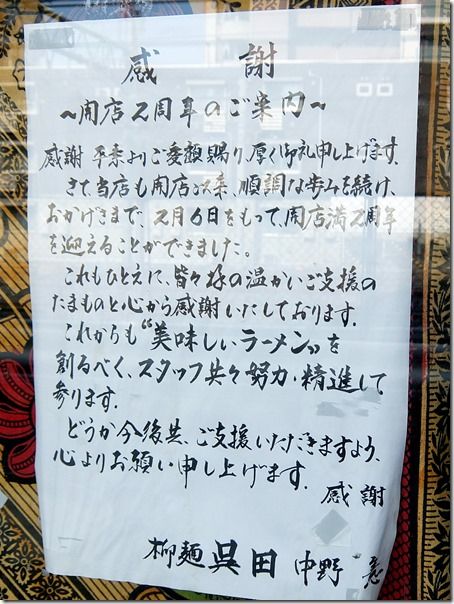 感謝
～開店2周年のご案内～
感謝 平素よりご愛顧賜り、厚く御礼申し上げます。
さて当店も開店以来、順調な歩みを続け、
おかげさまで、2月6日をもって、開店満2周年
を迎えることができました。
これもひとえに、皆々様の温かいご支援の
たまものと心から感謝いたしております。
これからも“美味しいラーメン”を
創るべく、スタッフ共々努力、精進して
参ります。
どうか今後共、ご支援いただきますよう、
心よりお願い申し上げます。
感謝
柳麺 呉田 中野